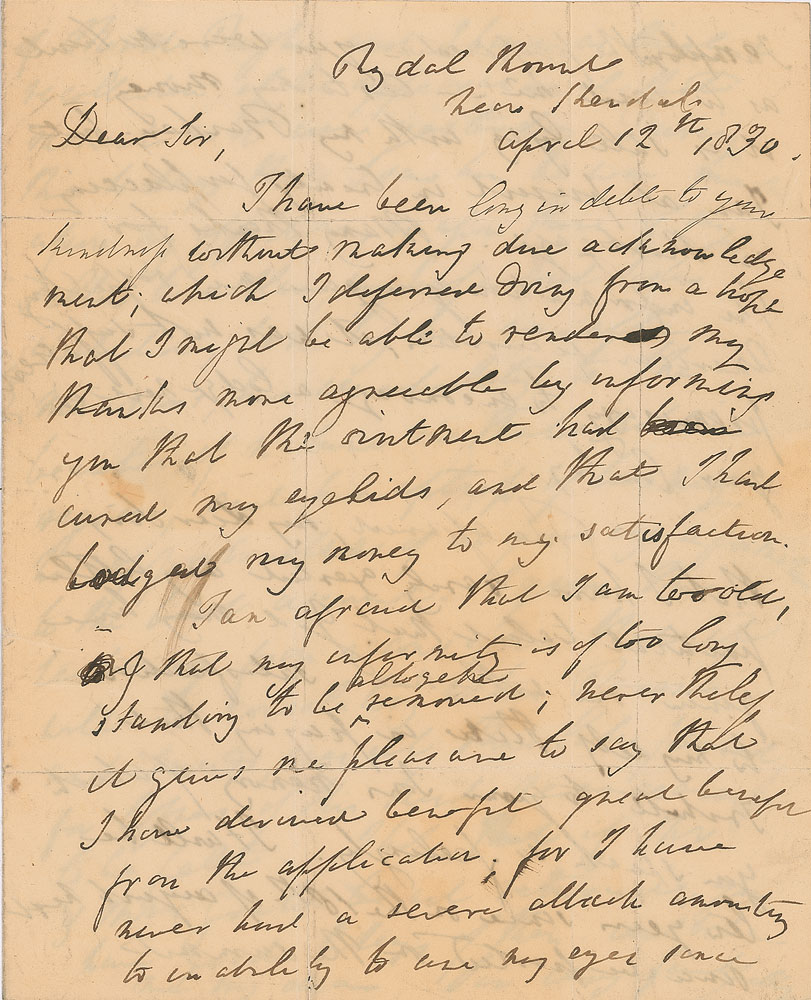 Rydal Mount
near Kendal
April 12th 1830.
Dear Sir,
I have been long in debt to your
kindness without making due acknowledge
ment; which I deferred doing from a hope
that I might be able to render my
thanks more agreeable by informing
you that the ointment had been
cured my eyelids, and that I had
lodged my money to my satisfaction.
I am afraid that I am too old,
& that my infirmity is of too long
altogether
standing to be removed; never theless
it gives me pleasure to say that
I have derived benefit great benefit
from the application; for I have
never had a severe attack amounting
to inability to use my eyes since